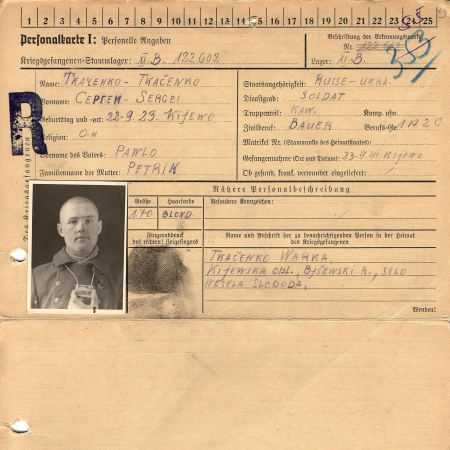 1 2 3 4 5 6 7 8 9 10 11 12 13 14 15 16 17 18 19 20 21 22 23 24 25
Personalkarte I: Personelle Angaben
Kriegsgefangenen-Stammlager: XI B. 122602
Beschriftung der Erkennungsmarke
Nr. 122602
Lager: XI B.
Des Kriegsgefangenen
R
Name: Ткаченко - Tkačenko
Vorname: Сергей - Sergei
Geburtstag und -ort: 22-9.23. Kijewo
Religion: O.H
Vorname des Vaters: Pawlo
Familienname der Mutter: Petrik
Staatsangehörigkeit: Russe-Ukra.
Dienstgrad: Soldat
Truppenteil: Kaw. Komp. usw.
Zivilberuf: Bauer Berufs-Gr.
Matrikel Nr. (Stammrolle des Heimatstaates):
Gefangennahme (Ort und Datum): 23-9.41 Kijewo
Ob gesund, krank, verwundet eingeliefert:
Nähere Personalbeschreibung
Größe Haarfarbe Besondere Kennzeichen:
1.70 Blond.
Fingerabdruck
des rechten! Zeigefingers
Name und Anschrift der zu benachrichtigenden Person in der Heimat
des Kriegsgefangenen
Tkačenko Warka,
Kijewska obl., Selo
Wesela Sloboda,
Wenden!